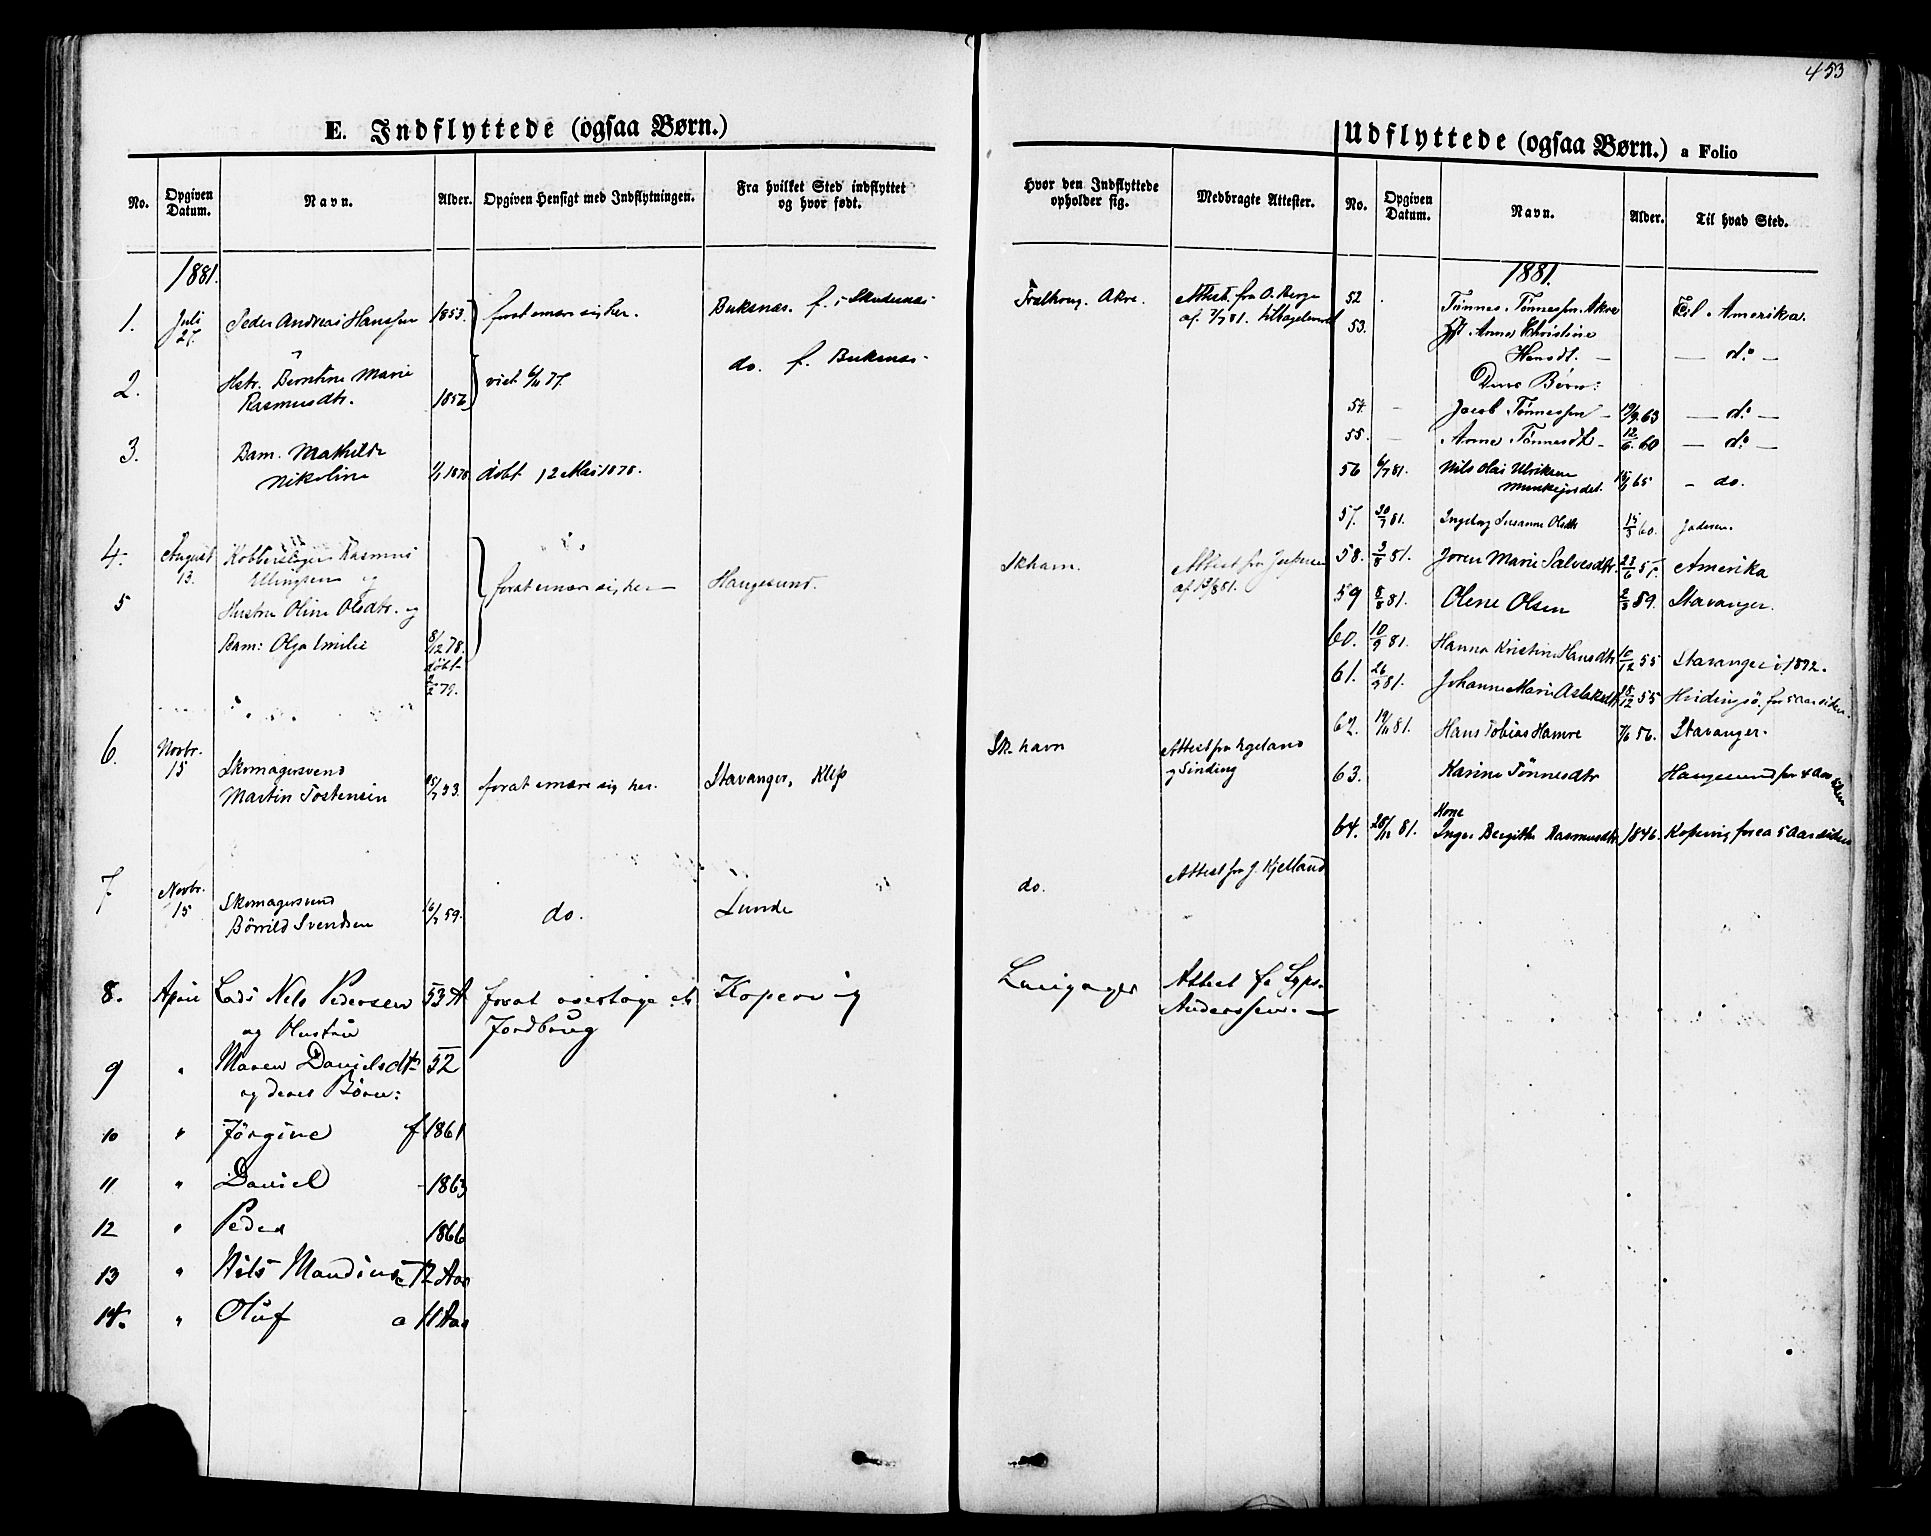 453
E. Indflyttede (ogsaa Børn.)
No.
Opgiven Datum.
Navn.
Alder.
Opgiven Hensigt med Indflytningen.
Fra hvilket Sted indflyttet og hvor født.
Hvor den Indflyttede opholder sig.
Medbragte Attester.
1881.
1. Juli 27. Peder Andreas Hanssen 1853. for at ernære sig her. Buksnæs. f. i Skudenæs. Akre. Attest fra O. Berge
af 7/7 81.
2. " Hstr. Berntine Marie 1856 viet 6/11 77. do. f. Buksnæs
Rasmusdtr.
3. Barn. Mathilde
Nikoline 1/1 1878 døbt 12 Mai 1878.
4. August 13. Kobberslager Rasmus
Ellingsen og for at ernære sig her Haugesund. Skhavn. Attest fra
af 13/8 81.
5 Hustru Oline Olsdtr. og
Barn: Olga Emilie 8/12 78.
døbt
2/2 79.
6. Novbr. 15 Skomagersvend
Martin Tostensen 53. for at ernære sig her. Stavanger, Klep Sk.havn Attest fra Egeland
og Sinding
7 Novbr. 15 Skomagersvend
Børrild Svendsen 16/7 59. do. Lunde do. Attest fra J. Kjelland
8. April Lods Nels Pedersen 53 A for at overtage et Kopervig Attest fra
og Hustru Jordbrug Anderssen.
9 " Maren Danielsdtr 52
og deres Børn:
10 " Jörgine f 1861
11 " Daniel - 1863
12 " Peder 1866
13 " Nils Mandius 12 Aar
14. " Oluf a 11 Aar
Udflyttede (ogsaa Børn.) a Folio
No.
Opgiven Datum.
Navn.
Alder.
Til hvad Sted.
1881.
52 . Tønnes Tønnessen Akre Til Amerika.
53. Anne Christine
Hansdt. — — do —
Deres Børn:
54. — Jacob Tønnessen — 19/9 63 — do —
55. — Anne Tønnesdt — 12/6 60 — do —
56 6/7 81. Nils Olai Ulriksen
Munkejordet. 65 - do.
57. 30/7 81. Ingeborg Susanne Olsdtr 15/3 60. Jæderen.
58. 3/8 81. Joren Marie Salvesdtr. 23/6 57. Amerika
59 8/8 81. Olene Olsen 2/3 59. Stavanger.
60. 10/9 81. Hanna Kristine Hansdtr 10/12 55 Stavanger i 1892.
61. 26/9 81. Johanne Marie Aslaksdt 18/12 55 Hvidingsö. for 5 Aar siden.
62. 19/11 81. Hans Tobias Hamre 7/6 56. Stavanger.
63. Karine Tönnesdtr Haugesund for 4 Aar siden
64. 28/12 81. Kone
Inger Bergitte Rasmusdtr 1846. Kopervig for ca 5 Aar siden